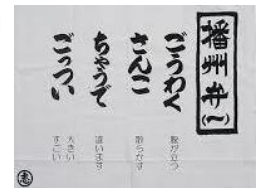 播州弁
(〜)
ごうわく
腹が立つ
さんこ
散らかす
ちゃうで
違います
ごっつい
大きい
すごい
恵